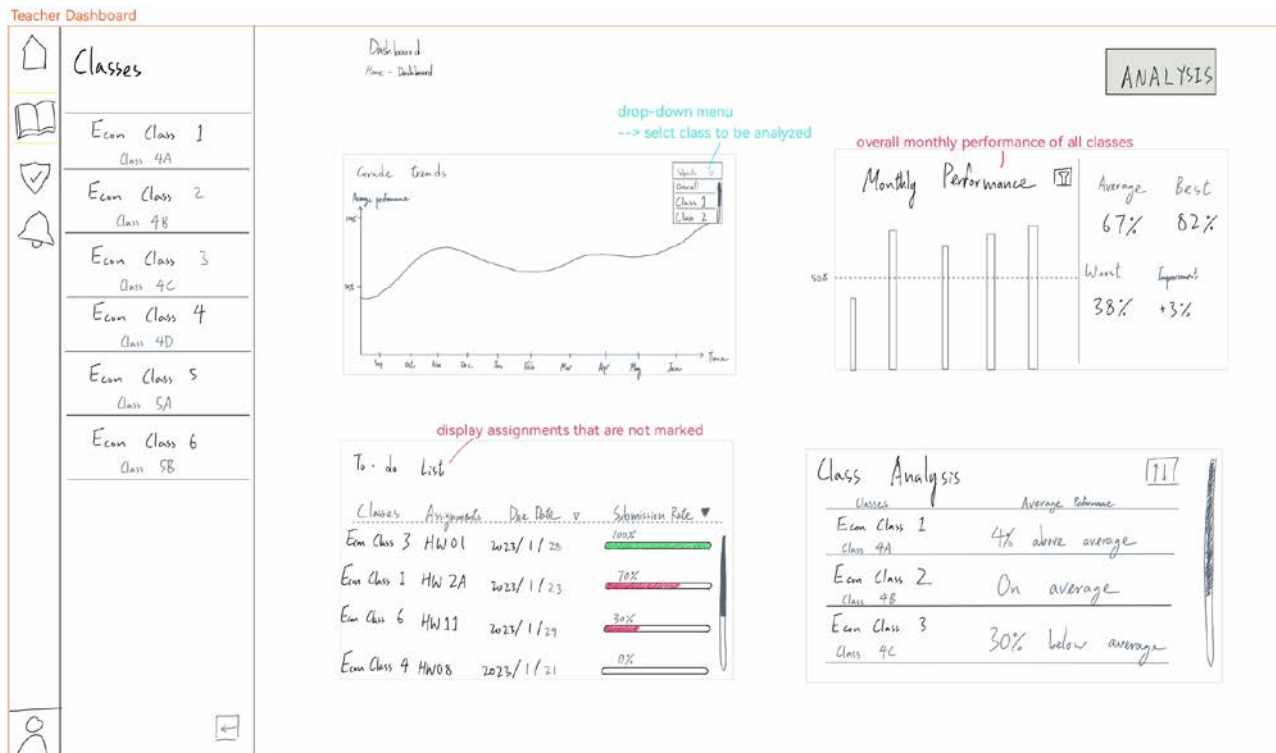 Teacher Dashboard
Classes
Econ Class 1
Class 4A
Econ Class 2
Class 4B
Econ Class 3
Class 4C
Econ Class 4
Class 4D
Econ Class 5
Class 5A
Econ Class 6
Class 5B
Dashboard
Home - Dashboard
ANALYSIS
drop-down menu
--> selct class to be analyzed
Grade trends
Average performance
Overall
Class 1
Class 2
Sep Oct Nov Dec Jan Feb Mar Apr May June
Time
overall monthly performance of all classes
Monthly Performance
50%
Average Best
67% 82%
Worst Improvement
38% +3%
display assignments that are not marked
To-do List
Classes Assignments Due Date Submission Rate
Econ Class 3 HW01 2023/1/28 100%
Econ Class 1 HW 2A 2023/1/23 70%
Econ Class 6 HW11 2023/1/29 30%
Econ Class 4 HW08 2023/1/21 0%
Class Analysis
Classes Average Performance
Econ Class 1
Class 4A
4% above average
Econ Class 2
Class 4B
On average
Econ Class 3
Class 4C
30% below average